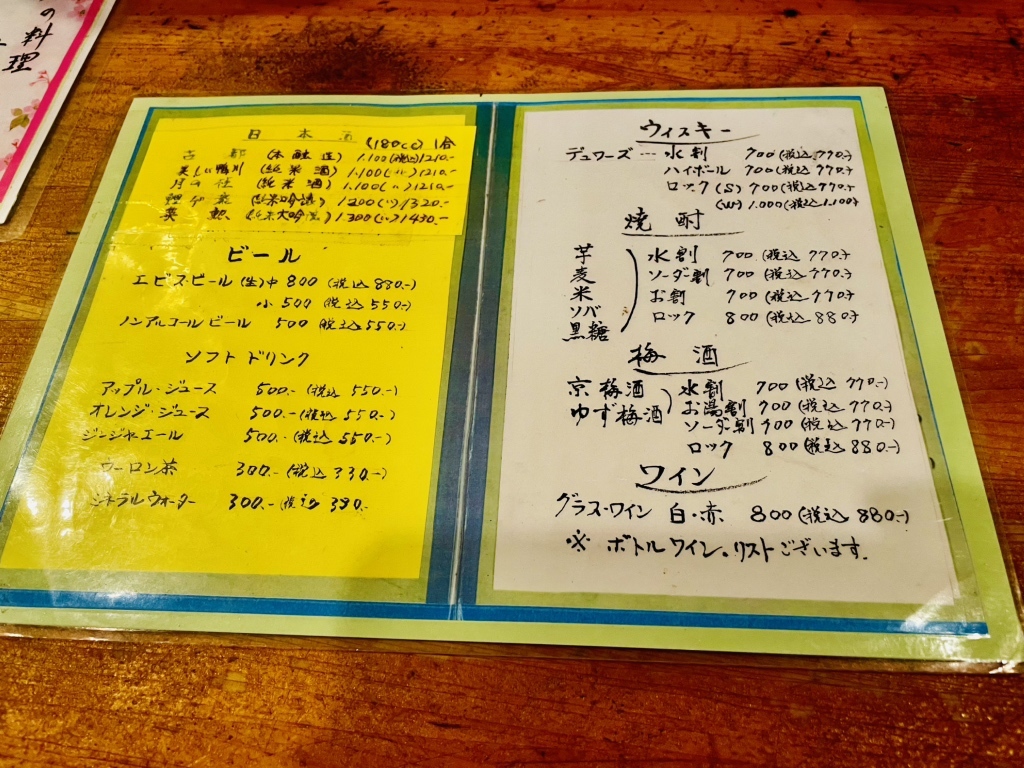 の料
理
日本酒 (180cc) 1合
古都 (本醸造) 1.100(税込)1210.-
美しい鴨川 (純米酒) 1.100(〃)1210.-
月の桂 (純米酒) 1.100(〃)1210.-
(純米吟醸) 1200(〃)1320.-
英勲 (純米大吟醸) 1300(〃)1430.-
ビール
エビスビール(生)中 800 (税込 880.-)
小 500 (税込 550.-)
ノンアルコールビール 500 (税込 550.-)
ソフトドリンク
アップル・ジュース 500.- (税込 550.-)
オレンジ・ジュース 500.- (税込 550.-)
ジンジャエール 500.- (税込 550.-)
ウーロン茶 300.- (税込 330.-)
ミネラルウォーター 300.- (税込 330.-
ウィスキー
デュワーズ… 水割 700 (税込 770.-)
ハイボール 700 (税込 770.-)
ロック (S) 700 (税込 770.-)
(W) 1.000 (税込 1.100.-)
焼酎
芋 水割 700 (税込 770.-)
麦 ソーダ割 700 (税込 770.-)
米 お割 700 (税込 770.-)
ソバ ロック 800 (税込 880.-)
黒糖
梅酒
京梅酒 水割 700 (税込 770.-)
ゆず梅酒 お湯割 700 (税込 770.-)
ソーダ割 700 (税込 770.-)
ロック 800 (税込 880.-)
ワイン
グラス・ワイン 白・赤 800 (税込 880.-)
※ ボトルワイン。リストございます。